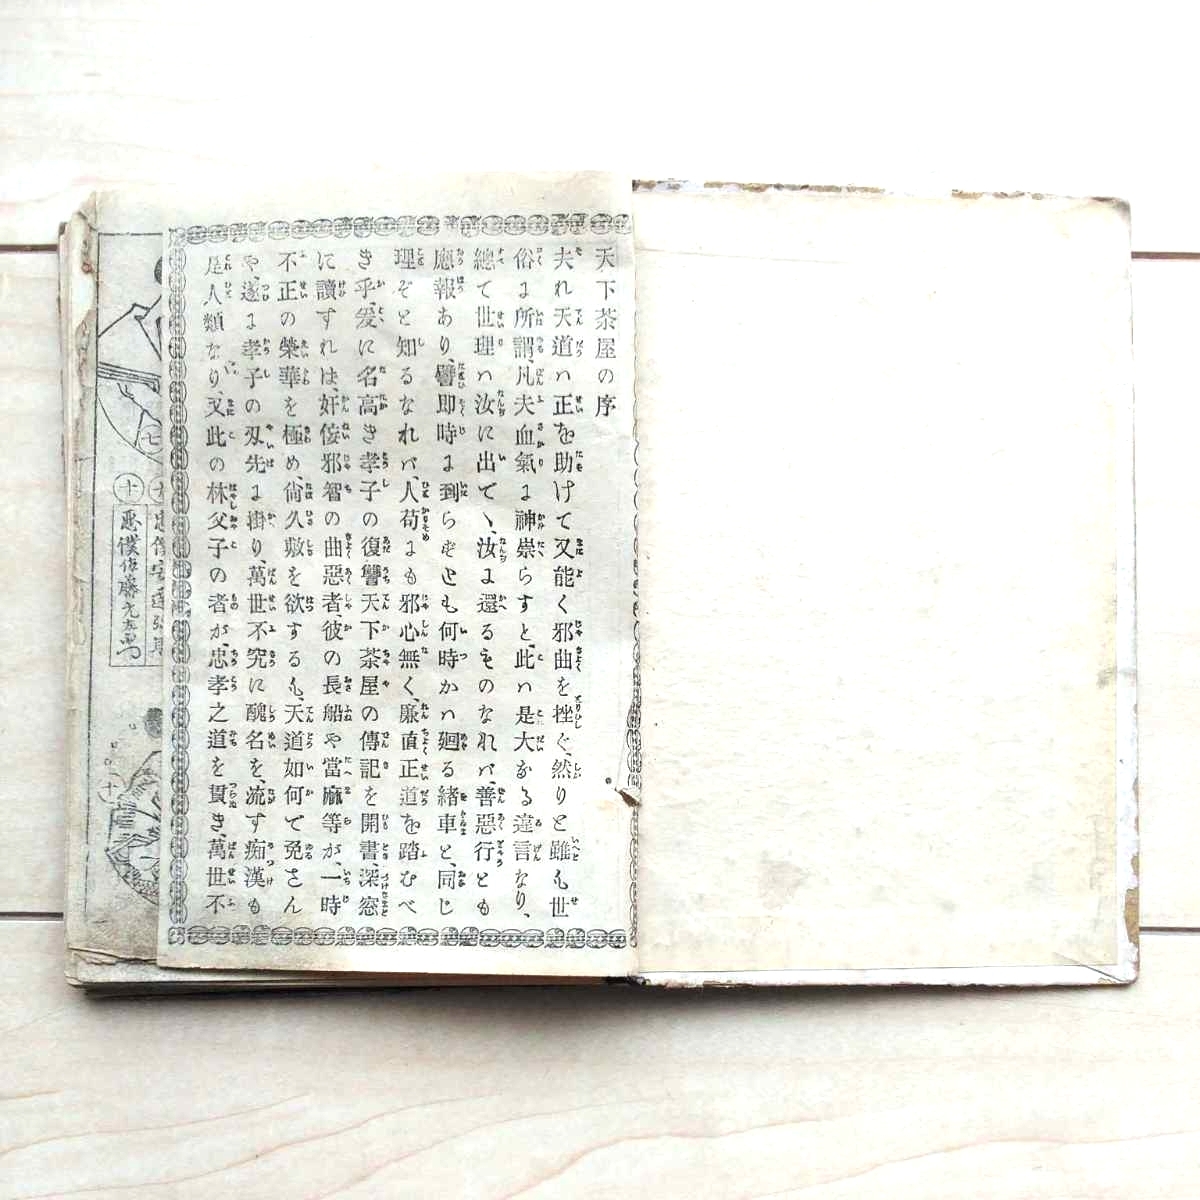 天下茶屋の序
夫れ天道ハ正を助けて又能く邪曲を挫ぐ、然りと雖も世
俗に所謂、凡夫血氣に神崇らすと、此ハ是大なる違言なり、
總て世理ハ汝に出て、汝に還るものなれバ、善惡行とも
應報あり、譬即時に到らずとも何時かハ廻る緒車と、同じ
理ぞと知るなれバ、人苟にも邪心無く、廉直正道を踏むべ
き乎、爰に名高き孝子の復讐天下茶屋の傳記を開書、深窓
に讀すれは、奸佞邪智の曲惡者、彼の長船や當麻等が、一時
不正の榮華を極め、尙久敷を欲するも、天道如何で免さん
や、遂に孝子の刄先に掛り、萬世不究に醜名を、流す痴漢も
是人類なり、又此の林父子の者が、忠孝之道を貫き、萬世不
七
十
惡僕佐藤
十一